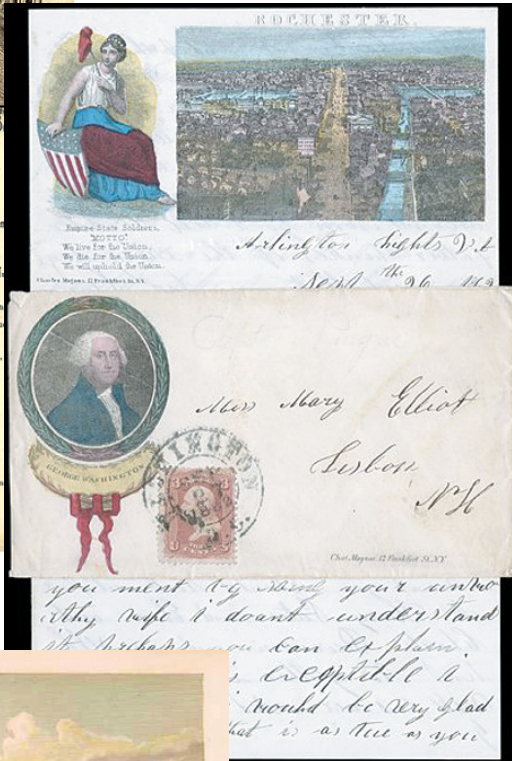 ROCHESTER.
Empire State Soldiers,
"MOTTO"
We live for the Union,
We die for the Union,
We will uphold the Union.
Charles Magnus, 12 Frankfort St. N.Y.
Arlington hights V.A
Sept the 26 1862
GEORGE WASHINGTON
WASHINGTON
3 3
Miss Mary Elliot
Lisbon
NH
Chas. Magnus, 12 Frankfort St. NY
you ment by
your unwo
rthy wife i doant understand
it perhaps you can explain.
is exceptible i
would be very glad
that is as true as you